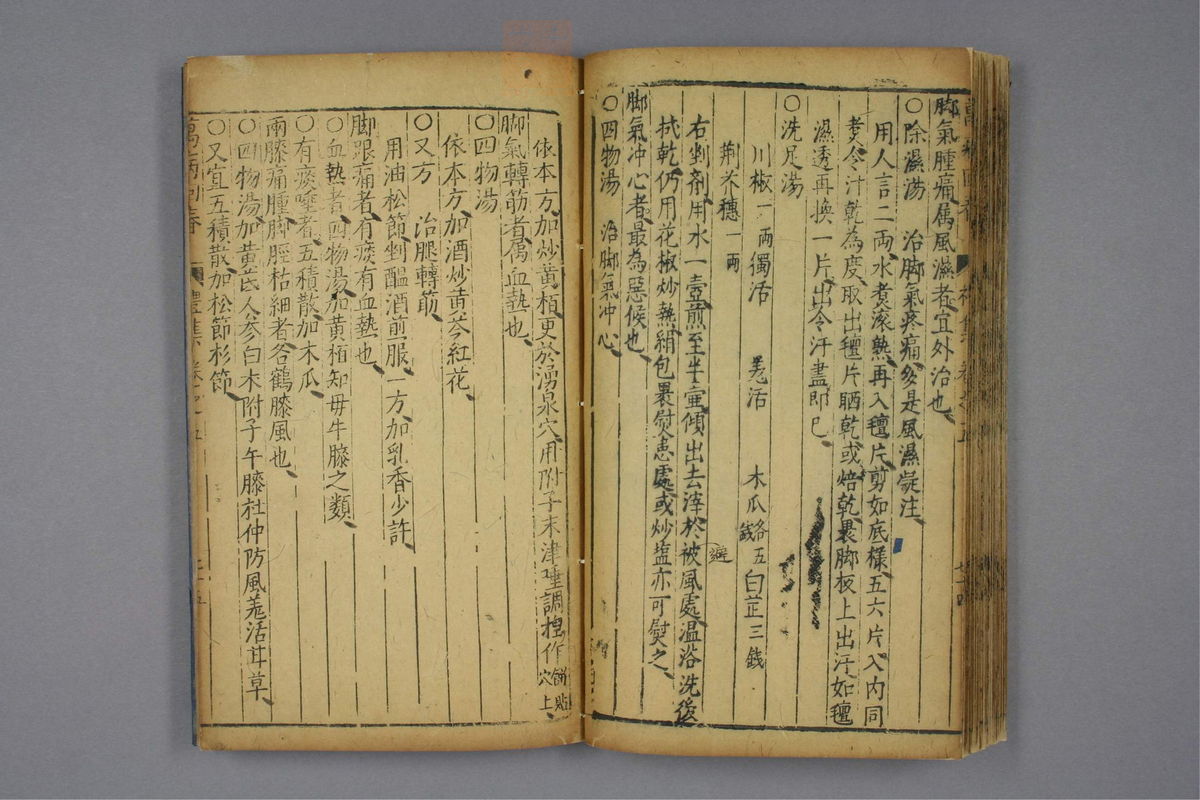 脚氣腫痛属風濕者宜外治也
○除濕湯　治脚氣疼痛多是風濕凝注
用人言二兩水煮滚熱再入氊片剪如底樣五六片入内同
煑令汁乾為度取出氊片晒乾或焙乾裹脚板上出汗如氊
濕透再換一片出令汗盡即已
○洗足湯
川椒一兩　獨活　羗活　木瓜各五錢　白芷三錢
荆芥穗一兩
右剉剤用水一壺煎至半壷傾出去滓於避被風處温浴洗後
拭乾仍用花椒炒熱絹包裹熨患處或炒塩亦可熨之
脚氣冲心者最為惡候也
○四物湯　治脚氣冲心
依本方加炒黄栢更於湧泉穴用附子末津唾調揑作餅貼穴上
脚氣轉筋者属血熱也
○四物湯
依本方加酒炒黄芩紅花
○又方　治腿轉筋
用油松節剉醖酒煎服一方加乳香少許
脚跟痛者有痰有血熱也
○血熱者四物湯加黄栢知母牛膝之類
○有痰唾者五積散加木瓜
兩膝痛腫脚脛枯細者名鶴膝風也
○四物湯加黄芪人参白术附子牛膝杜仲防風羗活甘草
○又宜五積散加松節杉節